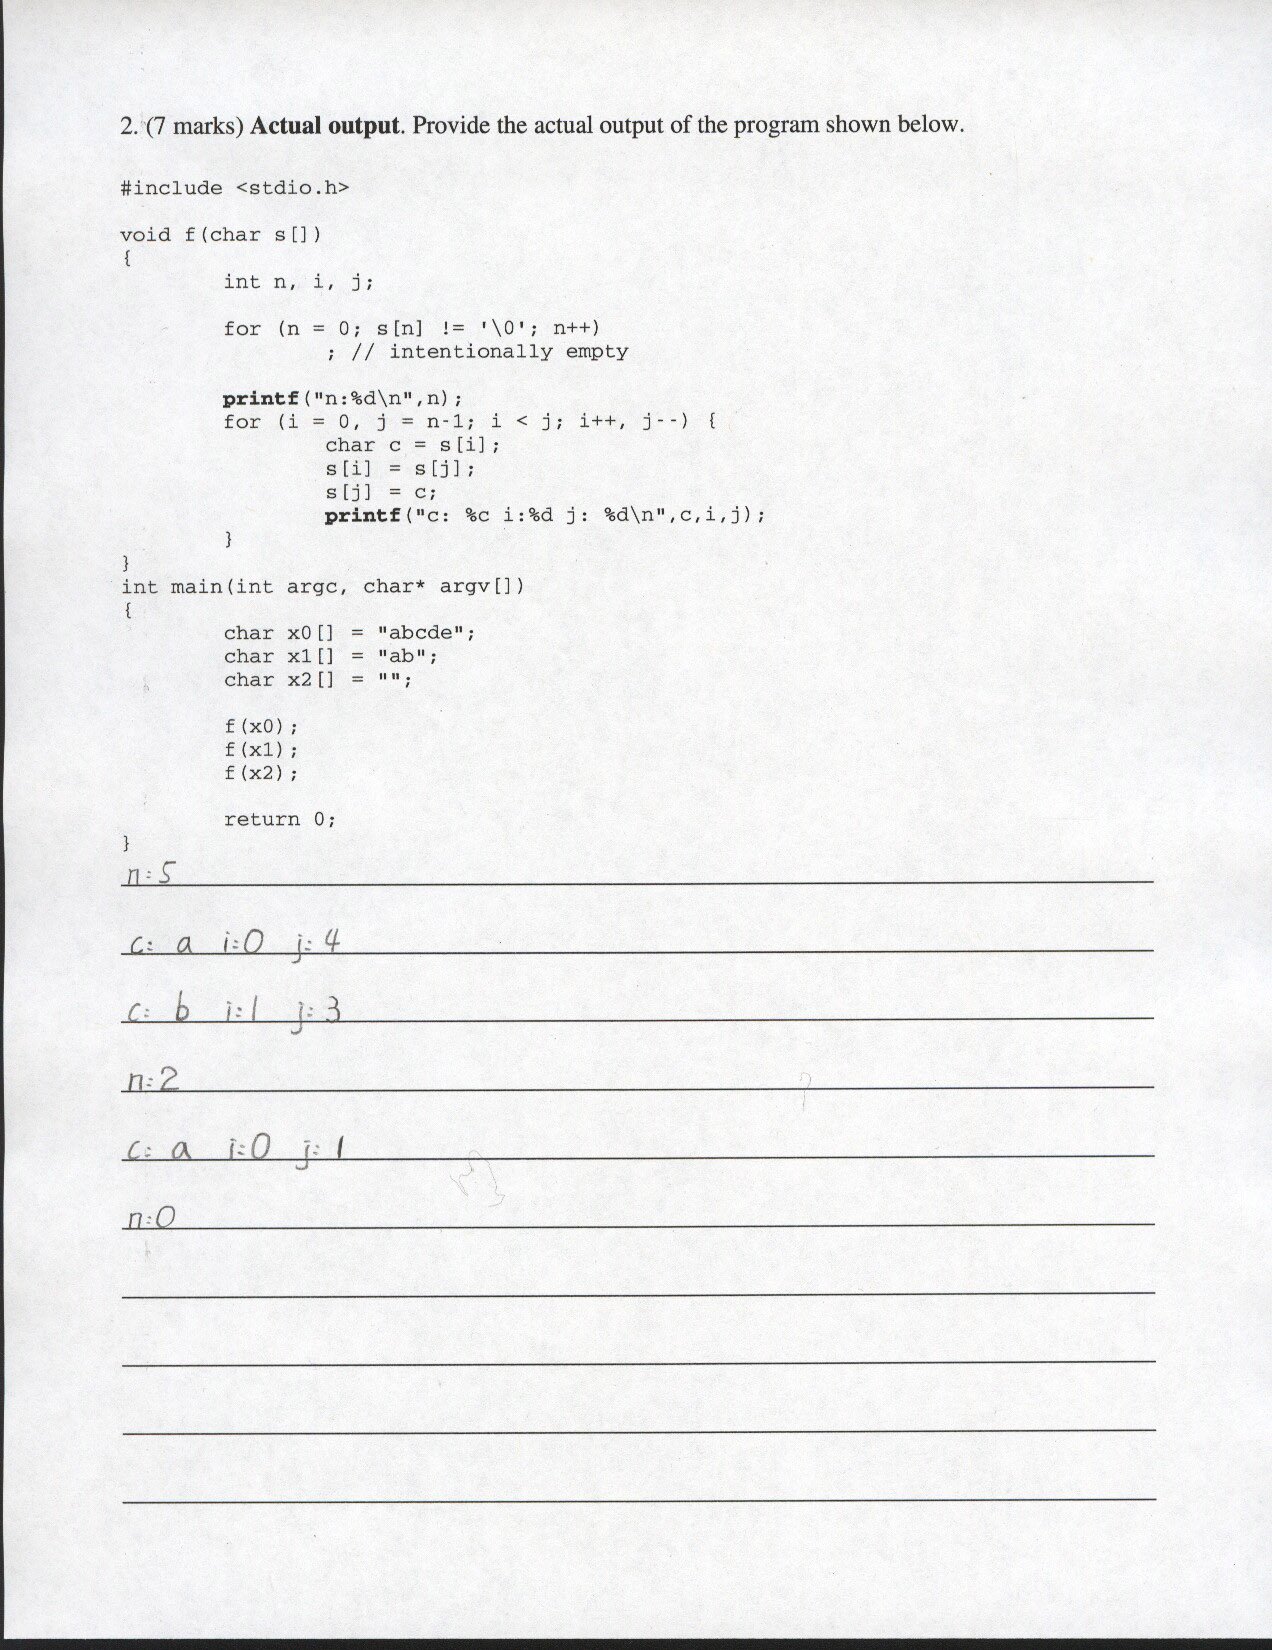 2. (7 marks) Actual output. Provide the actual output of the program shown below.
#include <stdio.h>
void f(char s[])
{
int n, i, j;
for (n = 0; s[n] != '\0'; n++)
; // intentionally empty
printf("n:%d\n",n);
for (i = 0, j = n-1; i < j; i++, j--) {
char c = s[i];
s[i] = s[j];
s[j] = c;
printf("c: %c i:%d j: %d\n",c,i,j);
}
}
int main(int argc, char* argv[])
{
char x0[] = "abcde";
char x1[] = "ab";
char x2[] = "";
f(x0);
f(x1);
f(x2);
return 0;
}
n:5
c: a i:0 j: 4
c: b i:1 j: 3
n:2
c: a i:0 j: 1
n:0